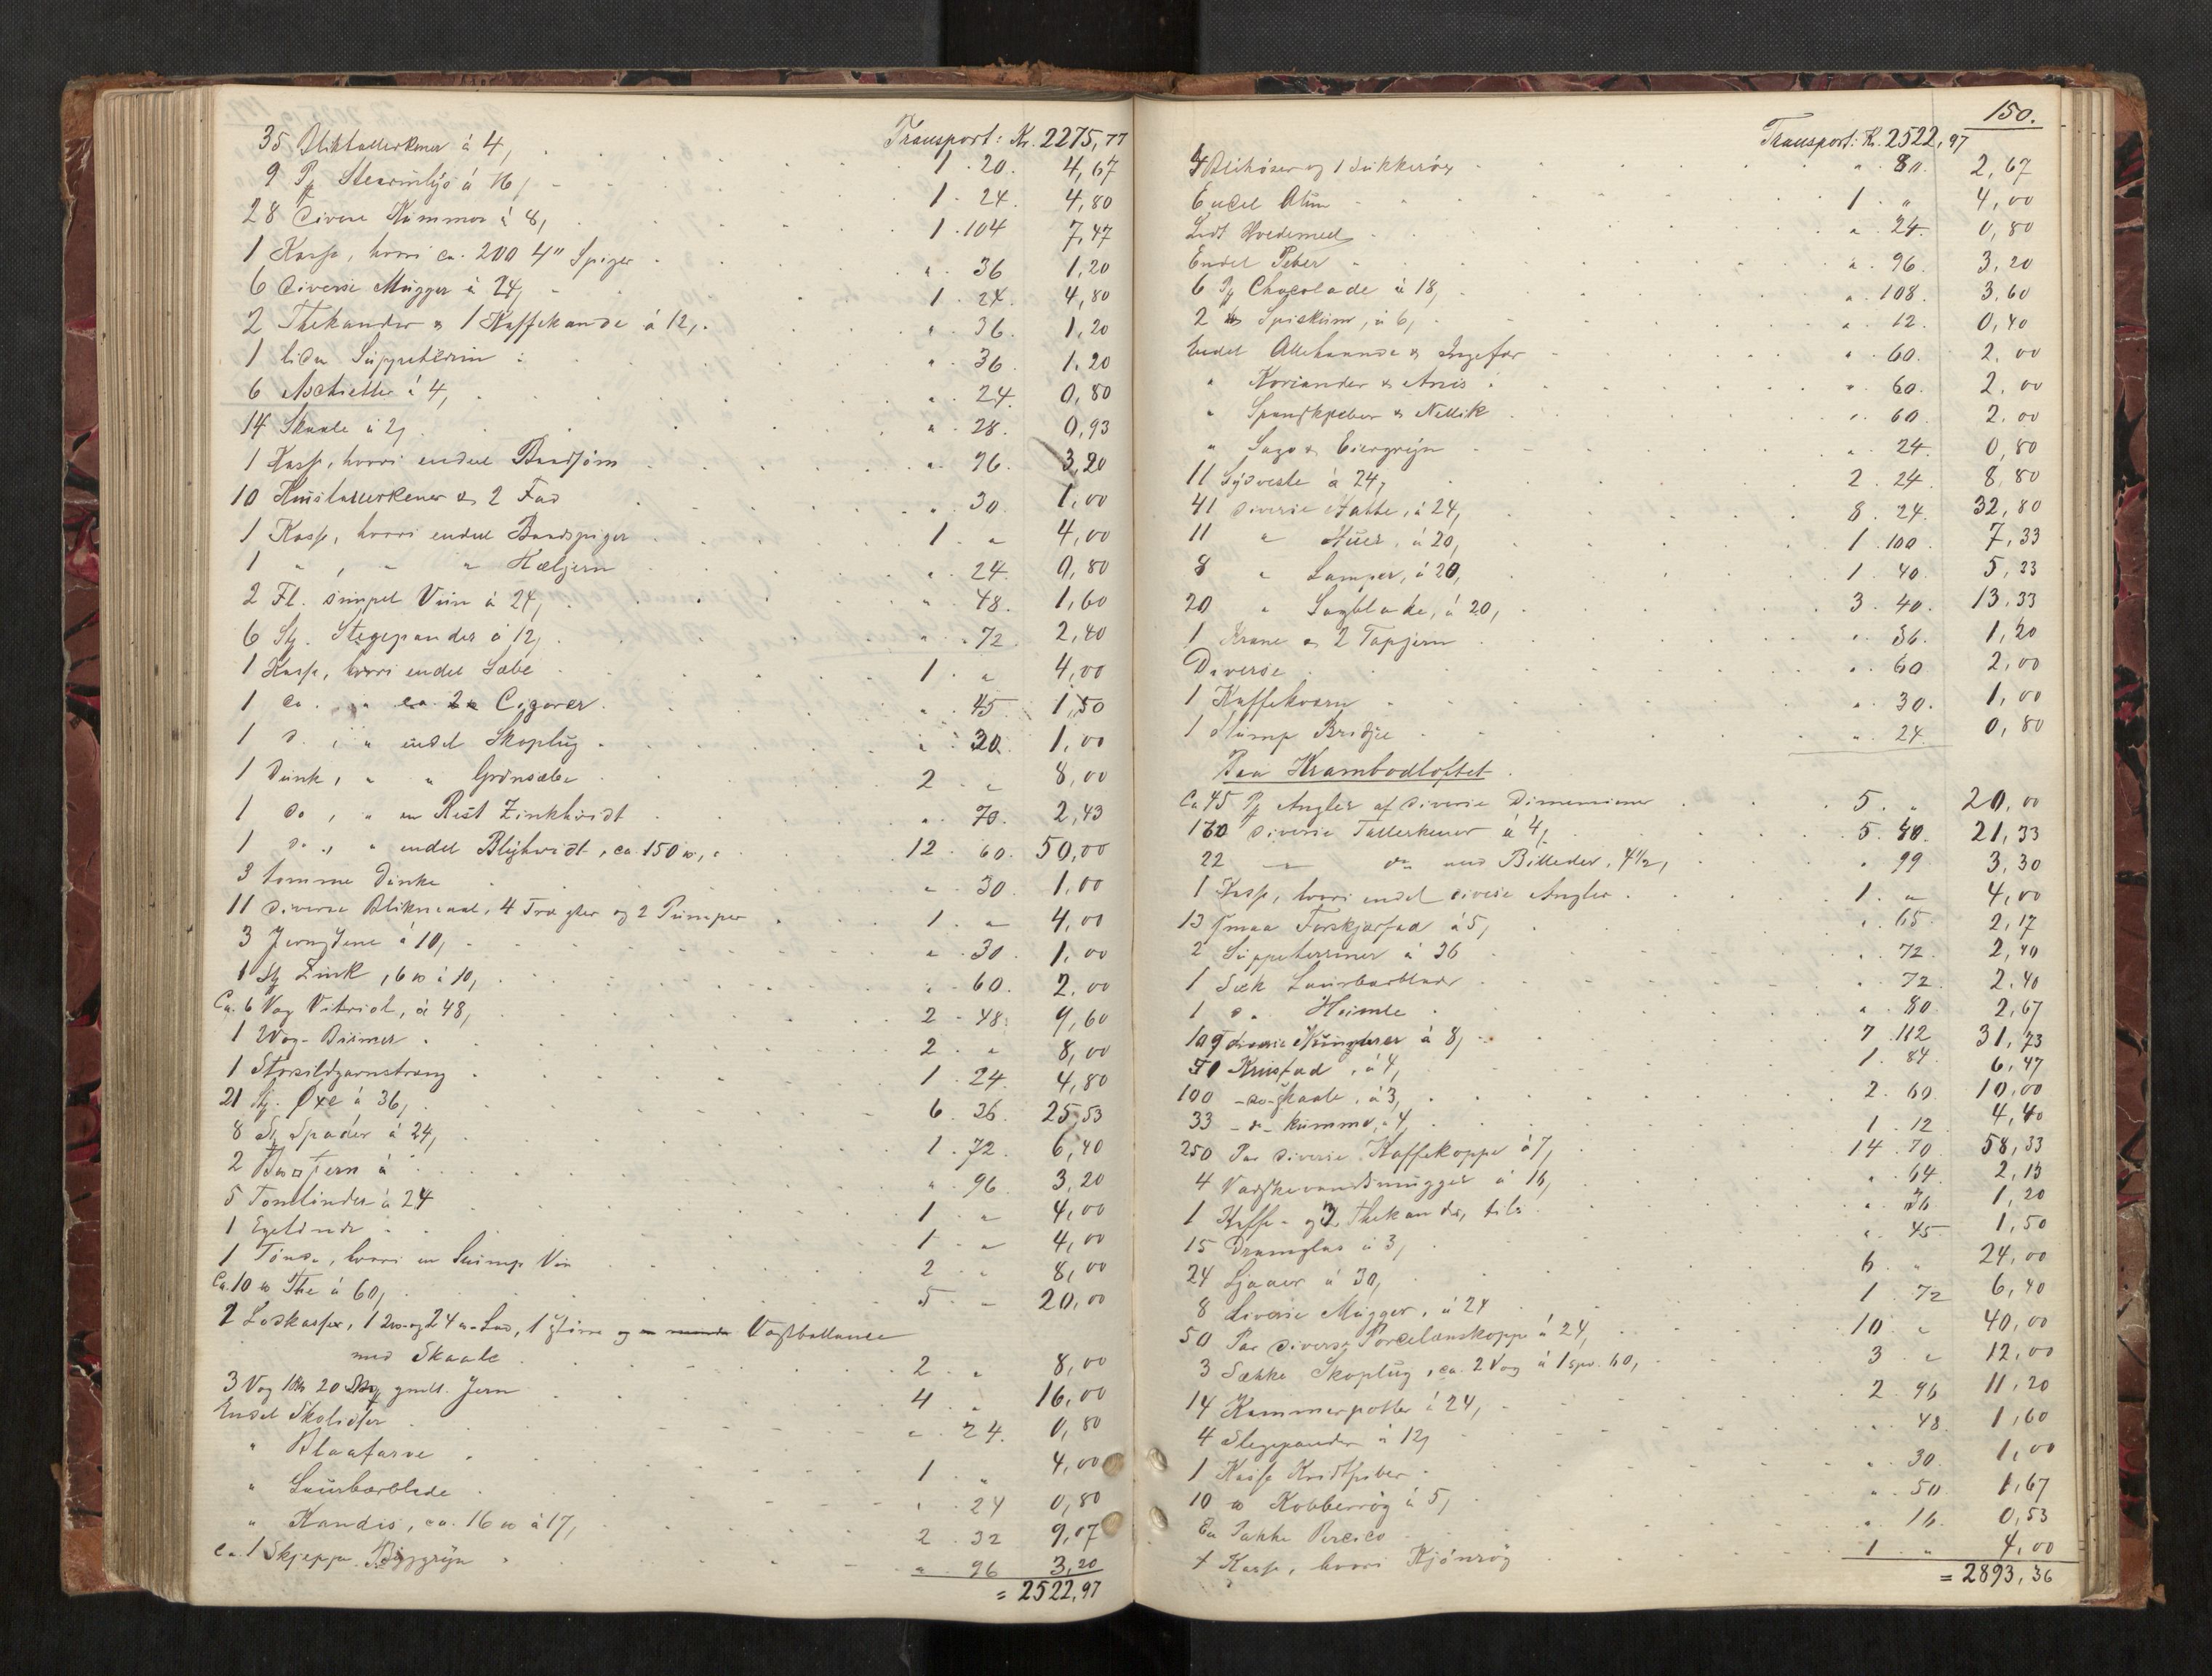 Transport: Kr. 2275,77
35 Bliktallerkener à 4, 1 . 20. 4,67
9 Pk Stearinlys à 16, 1 . 24. 4,80
28 diverse Kummer à 8, 1 . 104 7,47
1 Kasse, hvori ca. 200 4" Spiger " . 36 1,20
6 diverse Mugger à 24, 1 . 24. 4,80
2 Thekander & 1 Kaffekande à 12, " . 36. 1,20
1 liden Suppeterrin " . 36. 1,20
6 Aschietter à 4, " . 24. 0,80
14 Skaale à 2, " . 28. 0,93
1 Kasse, hvori endeel Baadsöm " . 96. 3,20
10 Krustallerkener & 2 Fad " . 30. 1,00
1 Kasse, hvori endeel Baadspiger 1 . " 4,00
1 " , " " Hæljern " . 24. 0,80
2 Fl. simpel Viin à 24, " . 48. 1,60
6 Stk. Stegepander à 12, " . 72. 2,40
1 Kasse, hvori endel Sæbe 1 . " 4,00
1 do. " Cigarer " . 45. 1,50
1 d. , " endel Skoplug " . 30. 1,00
1 Dunk, " " Grönsæbe 2 . " 8,00
1 do , " en Rest Zinkhvidt " . 70. 2,43
1 do , " endel Blyhvidt, ca. 150 ℔, 12 . 60. 50,00
3 tomme Dunke " . 30. 1,00
11 diverse Blikmaal, 4 Tragter og 2 Pumper 1 . " 4,00
3 Jerngryne à 10, " . 30. 1,00
1 Stk Zink, 6 ℔ à 10, " . 60. 2,00
Ca. 6 Vog Vitriol, à 48, 2 . 48. 9,60
1 Vog-Bismer 2 . " 8,00
1 Storsildgarnstrang 1 . 24. 4,80
21 Stk. Øxe à 36, 6 . 36. 25,53
8 Stk Spader à 24, 1 . 72. 6,40
2 à " . 96. 3,20
5 Tomtönder à 24 1 . " 4,00
1 Egetönde 1 . " 4,00
1 Tönde, hvori en Slump Viin 2 . " 8,00
Ca. 10 ℔ The à 60, 5 . " 20,00
2 Lodkasser, 1 2℔- og 24 ℔-Lod, 1 större og Vægtballance
med Skaale 2 . " 8,00
3 Vog 20 gmlt. Jern 4 . " 16,00
Endel Skolister " . 24. 0,80
" Blaafarve 1 . " 4,00
" Laurbærblade " . 24 0,80
" Kandis, ca. 16 ℔ à 17, 2 . 32 9,07
Ca. 1 Skjeppe Byggryn " . 96 3,20
= 2522,97
150.
Transport: Kr. 2522,97
4 Blikdöser og 1 Sukkeröx " . 80. 2,67
Endel Alun 1 . " 4,00
Lidt Hvedemeel " . 24. 0,80
Endel Peber " . 96. 3,20
6 Pk Chocolade à 18, " . 108. 3,60
2 ℔ Spiskum, à 6, " . 12. 0,40
Endel Allehaande & Ingefær " . 60. 2,00
" Koriander & Anis " . 60. 2,00
" Spanskpeber & Nellik " . 60 2,00
" Sago & Biergryn " . 24. 0,80
11 Sydveste à 24, 2 . 24. 8,80
41 diverse Hatte, à 24, 8 . 24. 32,80
11 " Huer, à 20, 1 . 100. 7,33
8 " Lamper, à 20, 1 . 40. 5,33
20 " Sagblade, à 20, 3 . 40. 13,33
1 Krane & 2 Tapjern " . 36. 1,20
Diverse " . 60. 2,00
1 Kaffekværn " . 30. 1,00
1 Slump Bridsje " . 24. 0,80
Paa Krambodloftet
Ca. 45 Pk Angler af diverse Dimensioner 5 . " 20,00
160 diverse Tallerkener à 4, 5 . 40. 21,33
22 — do med Billeder, 4½, " . 99 3,30
1 Kasse, hvori endel diverse Angler 1 . " 4,00
13 smaa Forskjærfad à 5, " . 65. 2,17
2 Suppeterriner à 36 " . 72. 2,40
1 Sæk Laurbærblade " . 72. 2,40
1 do. Humle " . 80 2,67
109 diverse à 8, 7 112 31,73
50 Krusfad, à 4, 1 . 84. 6,47
100 -do- skaale, à 3, 2 . 60. 10,00
33 -do- kumme, à 4, 1 . 12. 4,40
250 Par diverse Kaffekopper à 7, 14 . 70 58,33
4 Vaskevandsmugger à 16, " . 64. 2,13
1 Kaffe- og 2 Thekander, tils. " . 36 1,20
15 Dramglas à 3, " . 45. 1,50
24 Ljaaer à 30, 6 . " 24,00
8 diverse Mugger, à 24 1 . 72 6,40
50 Par diverse Porcelænskopper à 24, 10 . " 40,00
3 Sække Skoplug, ca. 2 Vog à 1 Spd. 60, 3 . " 12,00
14 Kammerpotter à 24, 2 . 96 11,20
4 Stegepander à 12, " . 48. 1,60
1 Kasse Kridtpiber " . 30. 1,00
10 ℔ Kobberrög à 5, " . 50. 1,67
En Pakke Percico " . 16. 0,53
1 Kasse, hvori Kjönrög 1 . " 4,00
= 2893,36